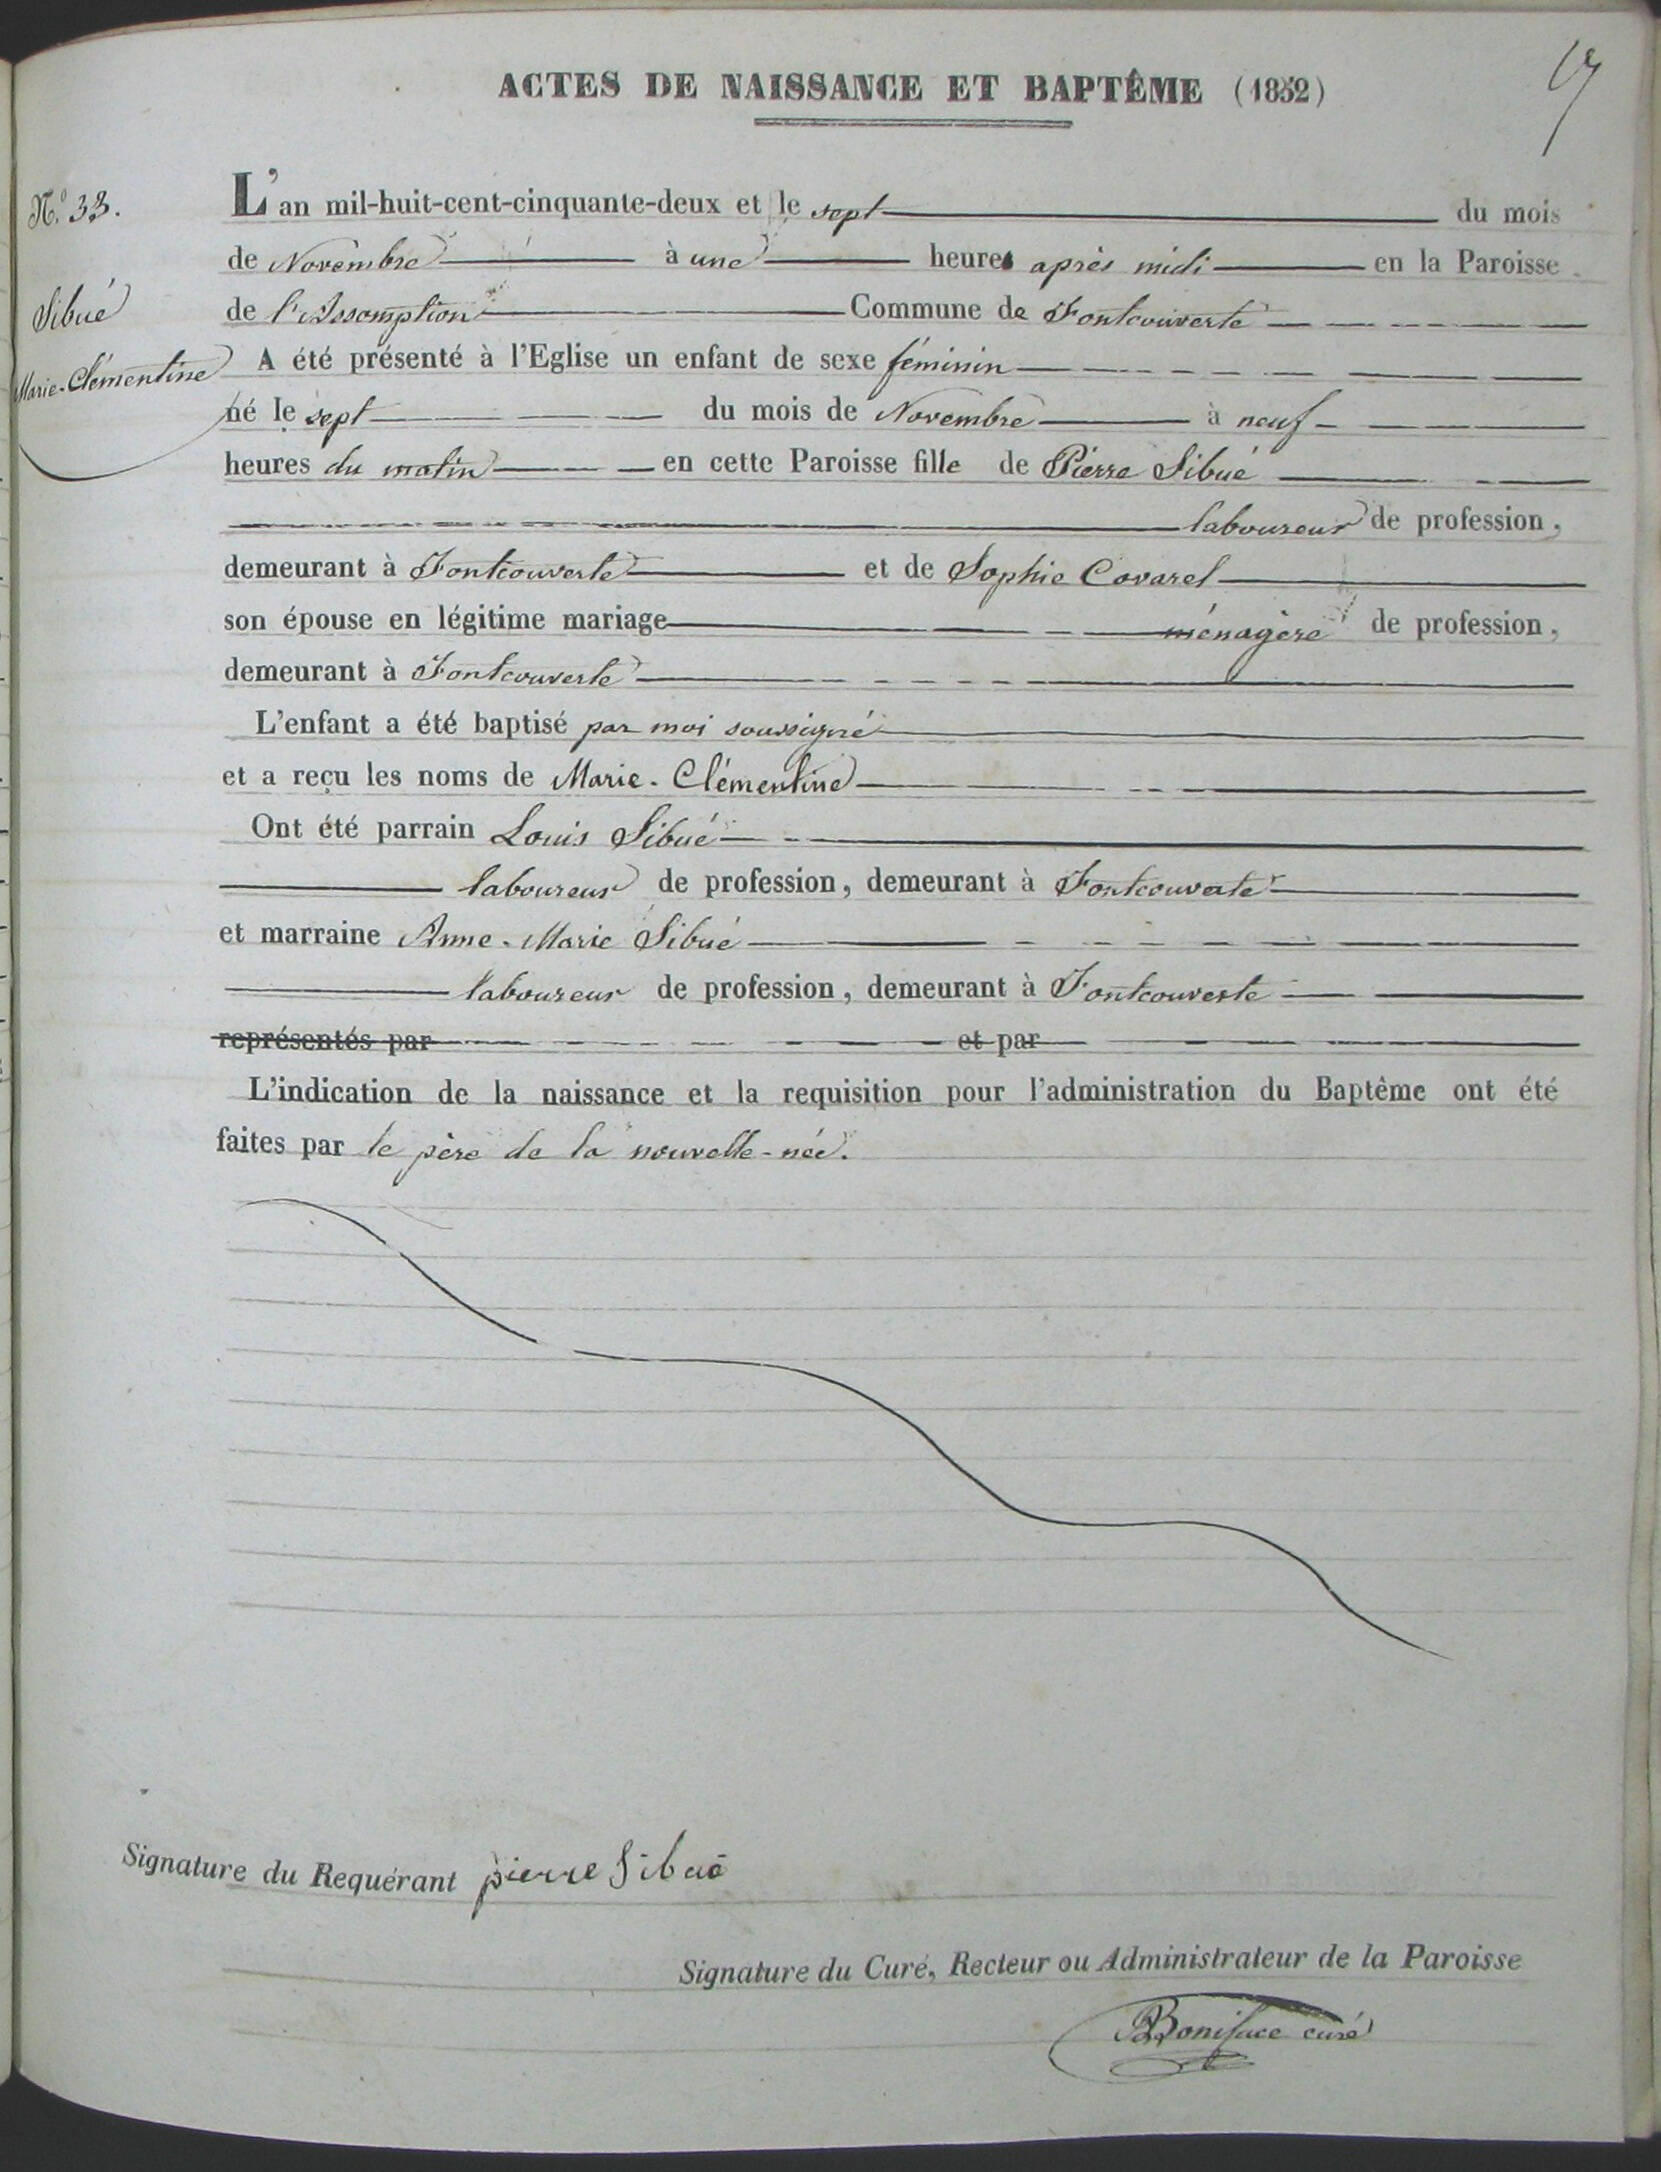 ACTES DE NAISSANCE ET BAPTÊME (1852)
N.o 33.
Sibué
Marie-Clémentine
L'an mil-huit-cent-cinquante-deux et le sept du mois
de Novembre à une heure après midi en la Paroisse
de l'Assomption Commune de Fontcouverte
A été présenté à l'Eglise un enfant de sexe féminin
né le sept du mois de Novembre à neuf
heures du matin en cette Paroisse fille de Pierre Sibué
laboureur de profession,
demeurant à Fontcouverte et de Sophie Covarel
son épouse en légitime mariage ménagère de profession,
demeurant à Fontcouverte
L'enfant a été baptisé par moi soussigné
et a reçu les noms de Marie-Clémentine
Ont été parrain Louis Sibué
laboureur de profession, demeurant à Fontcouverte
et marraine Anne-Marie Sibué
laboureur de profession, demeurant à Fontcouverte
représentés par et par
L'indication de la naissance et la requisition pour l'administration du Baptême ont été
faites par le père de la nouvelle-née.
Signature du Requérant pierre Sibué
Signature du Curé, Recteur ou Administrateur de la Paroisse
Boniface curé